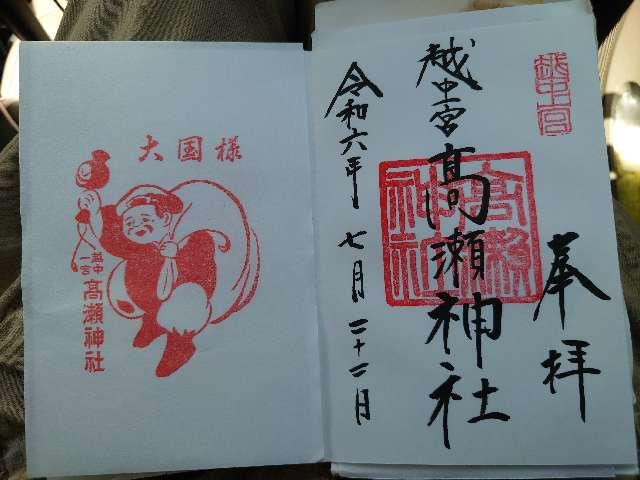 奉拝
越中一宮
越中一宮髙瀬神社
髙瀬神社
令和六年七月二十二日
大国様
越中一宮
髙瀬神社